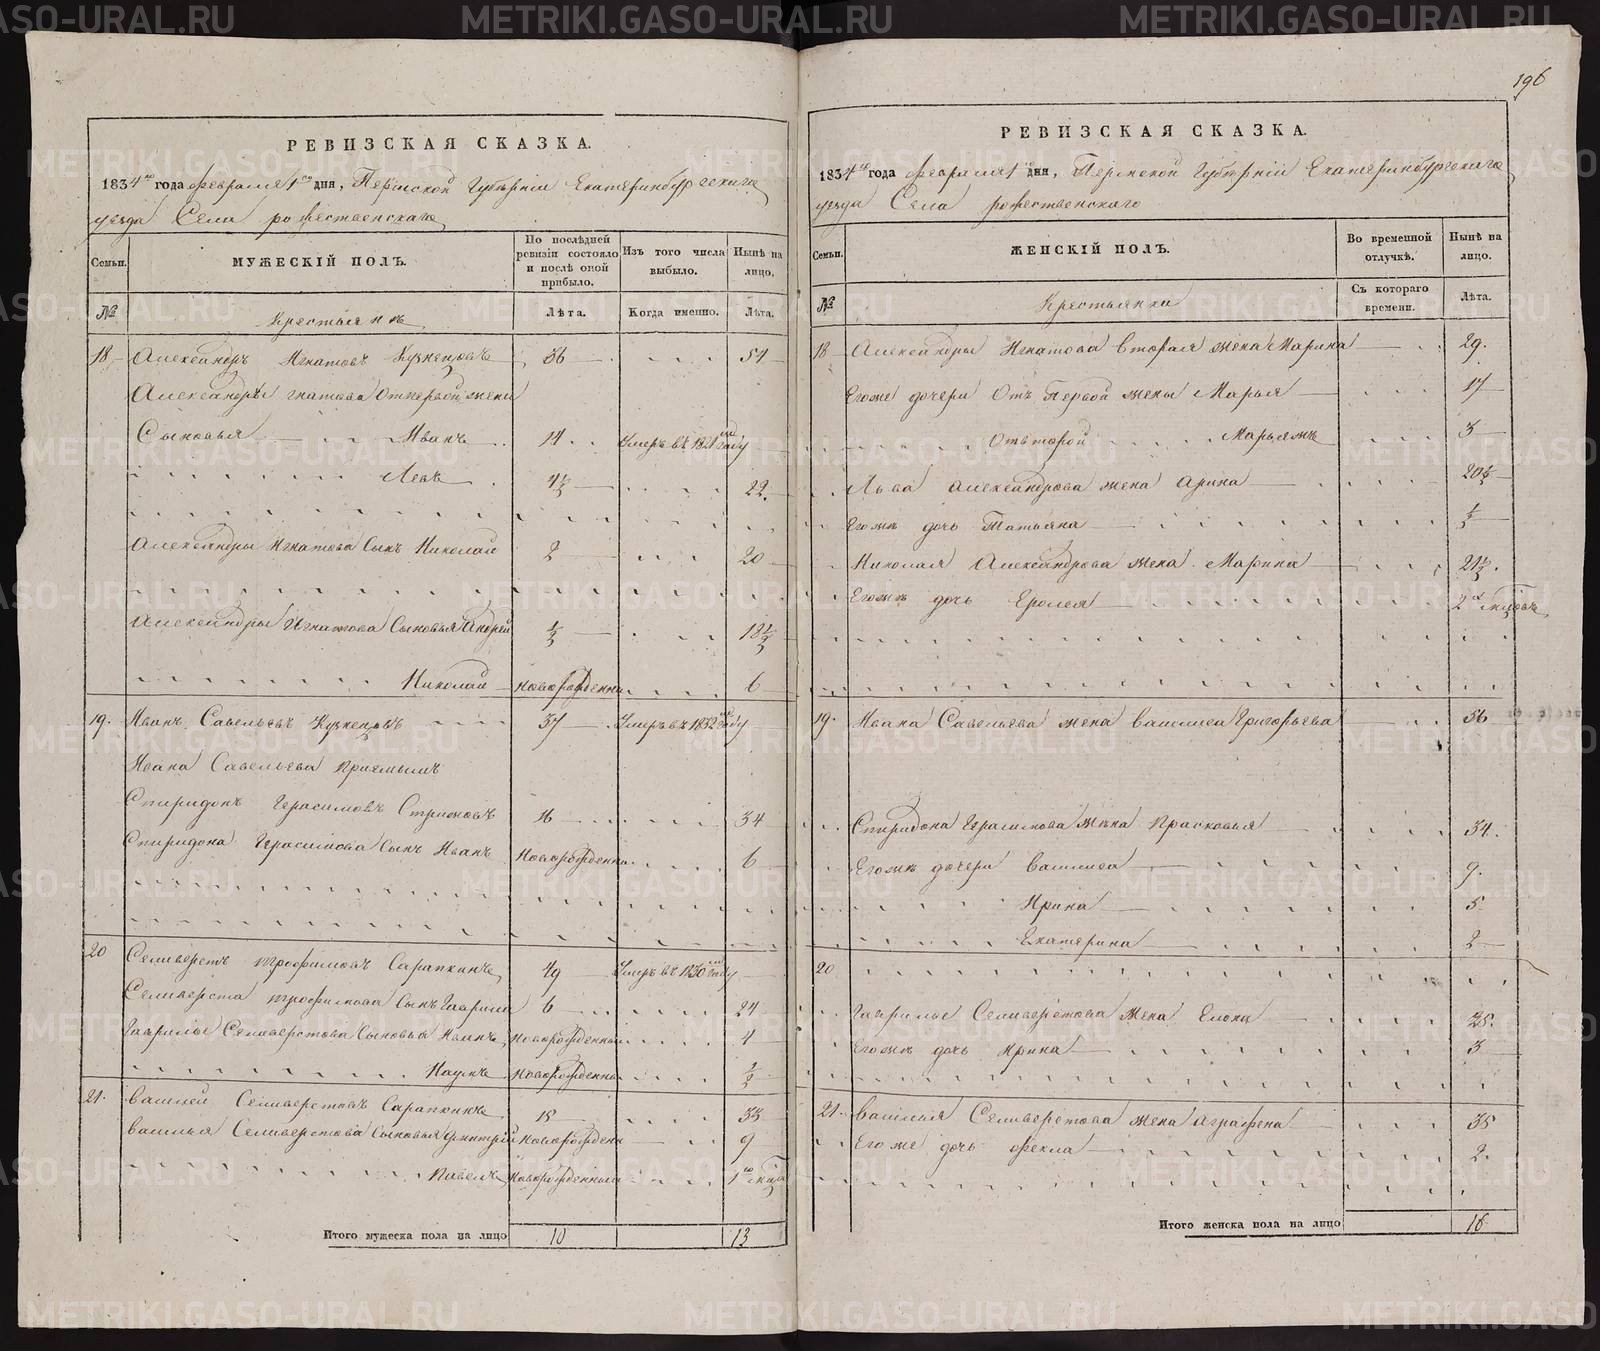 196
РЕВИЗСКАЯ СКАЗКА.
1834го года февраля 1го дня, Пермской Губерніи Екатеринбургскаго
уезда Села рожественскаго
Семьи.
МУЖЕСКІЙ ПОЛЪ.
По послѣдней ревизіи состояло и послѣ оной прибыло.
Изъ того числа выбыло.
Нынѣ на лицо.
№
Крестьяннъ
Лѣта.
Когда именно.
Лѣта.
18 Александръ Игнатовъ Кузнецовъ 36 54
Александры гнатова отпервой жены
Сыновья Иванъ 14 Умеръ въ 1821 году
Левъ 4½ 22
Александры Игнатова Сынъ Николай 2 20
Александры Игнатова Сыновья Андрей ½ 18½
Николай новорожденны 6
19. Иванъ Савельевъ Кузнецовъ 37 Умеръ въ 1832 году
Ивана Савельева приемышъ
Спиридонъ Герасимовъ 16 34
Спиридона Герасимова Сынъ Иванъ Новорожденны 6
20 Селиверстъ трофимовъ Сарапкинъ 49 Умеръ въ 1830 году
Селиверста трофимова Сынъ Гаврила 6 24
Гаврилы Селиверстова Сыновья Иванъ новорожденный 4
Наумъ новорожденны ½
21. василей Селиверстовъ Сарапкинъ 15 33
василья Селиверстова Сыновья Дмитрей новорожденн 9
Павелъ Новорожденный 1го мца
Итого мужеска пола на лицо 10 13
РЕВИЗСКАЯ СКАЗКА.
1834го года февраля 1го дня, Пермской Губерніи Екатеринбургскаго
уезда Села рожественскаго
Семьи.
ЖЕНСКІЙ ПОЛЪ.
Во временной отлучкѣ.
Нынѣ на лицо.
№
Крестьянки
Съ котораго времени.
Лѣта.
18 Александры Игнатова вторая жена Марина 29.
Егоже дочери Отъ Первой жены Марья 17
Отвторой Марьямъ 3
Льва Александрова жена Арина 20½
Егожъ дочь Татьяна ½
Николая Александрова жена Марина 21½.
Егожъ дочь 2хъ
19. Ивана Савельева жена василиса Григорьева 56
Спиридона Герасимова жена Прасковья 34.
Егожъ дочери василиса 9.
Ирина 5
Екатерина 2
20
Гаврилы Селиверстова Жена Елена 25.
Егожъ дочь Ирина 3
21. василья Селиверстова жена аграфена 35
Егоже дочь фекла 2.
Итого женска пола на лицо 16
METRIKI.GASO-URAL.RU